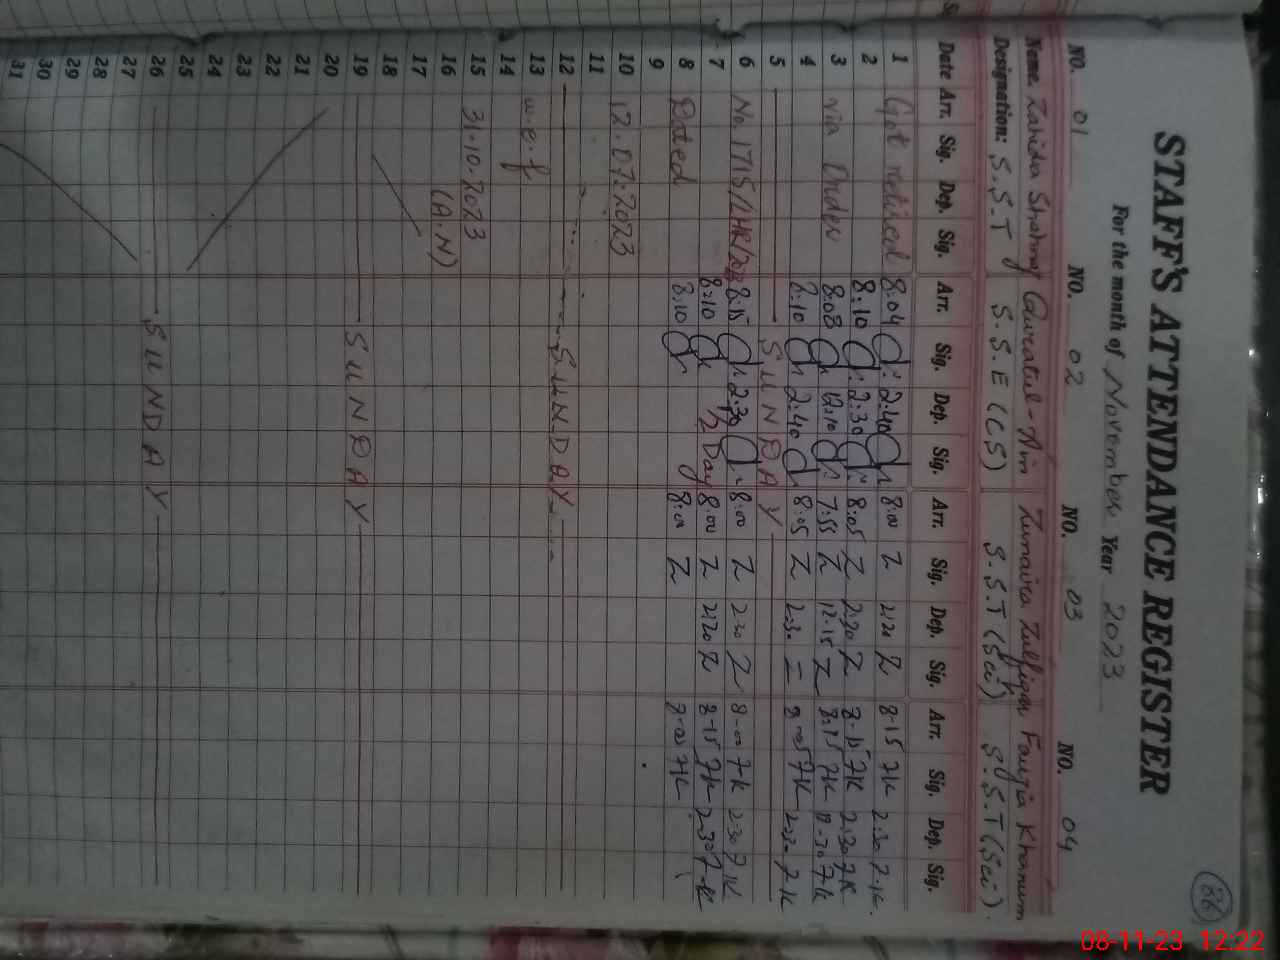 86
STAFF'S ATTENDANCE REGISTER
For the month of November Year 2023
NO. 01 NO. 02 NO. 03 NO. 04
Name Zahida Shahnaz Quratul-Ain Zunaira Zulfiqar Fauzia Khanum
Designation: S.S.T S.S.E (CS) S.S.T (Sci) S.S.T (Sci).
Date Arr. Sig. Dep. Sig. Arr. Sig. Dep. Sig. Arr. Sig. Dep. Sig. Arr. Sig. Dep. Sig.
1 Got retired 8:04 2:40 8:00 Z 2:20 Z 8-15 7K 2:30 7.K.
2 8:10 2:30 8:05 Z 2:30 Z 8-15 7K 2:30 7K
3 via Order 8:08 12:10 7:55 Z 12.15 Z 8:15 7K 12-30 7K
4 8:10 2:40 8:05 Z 2:30 8-05 7K 2:30 7K
5 SUNDAY
6 No. 1715/LHR/ 8:15 2:30 8:00 Z 2:30 Z 8-00 7K 2:30 7K
7 8:10 1/2 Day 8:00 Z 2:20 Z 8-15 7K 2:30 7-K
8 Dated 8:10 8:00 Z 8-00 7K
9
10 12.07.2023
11
12 SUNDAY
13 w.e.f
14
15 31.10.2023
16 (A.N)
17
18
19 SUNDAY
20
21
22
23
24
25
26 SUNDAY
27
28
29
30
31
08-11-23 12:22